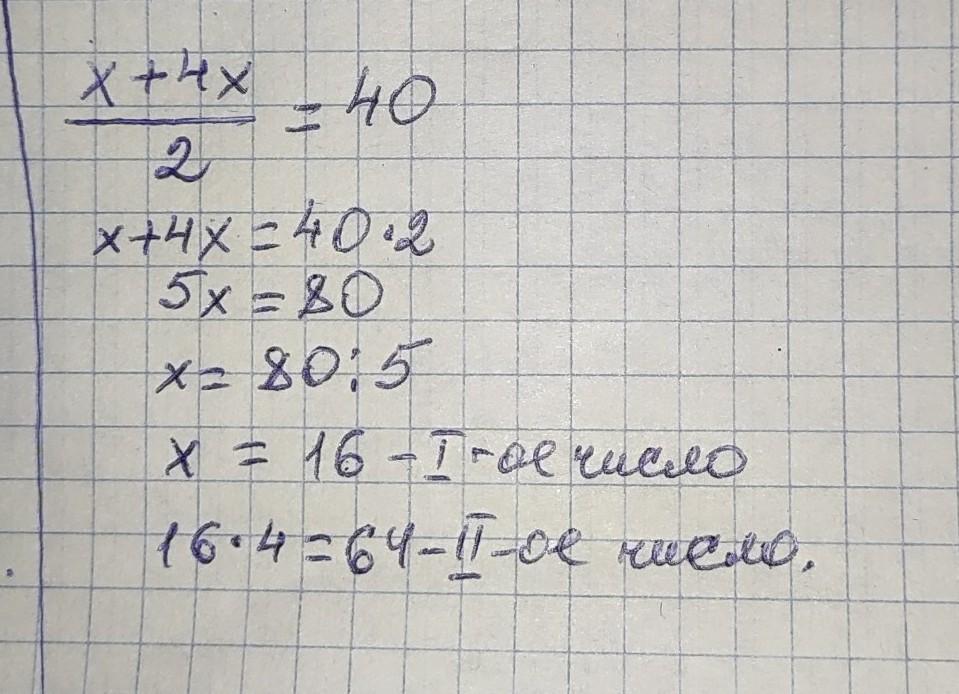 x+4x
—— = 40
2
x+4x=40·2
5x=80
x=80:5
x = 16 - I-ое число
16·4=64-II-ое число.